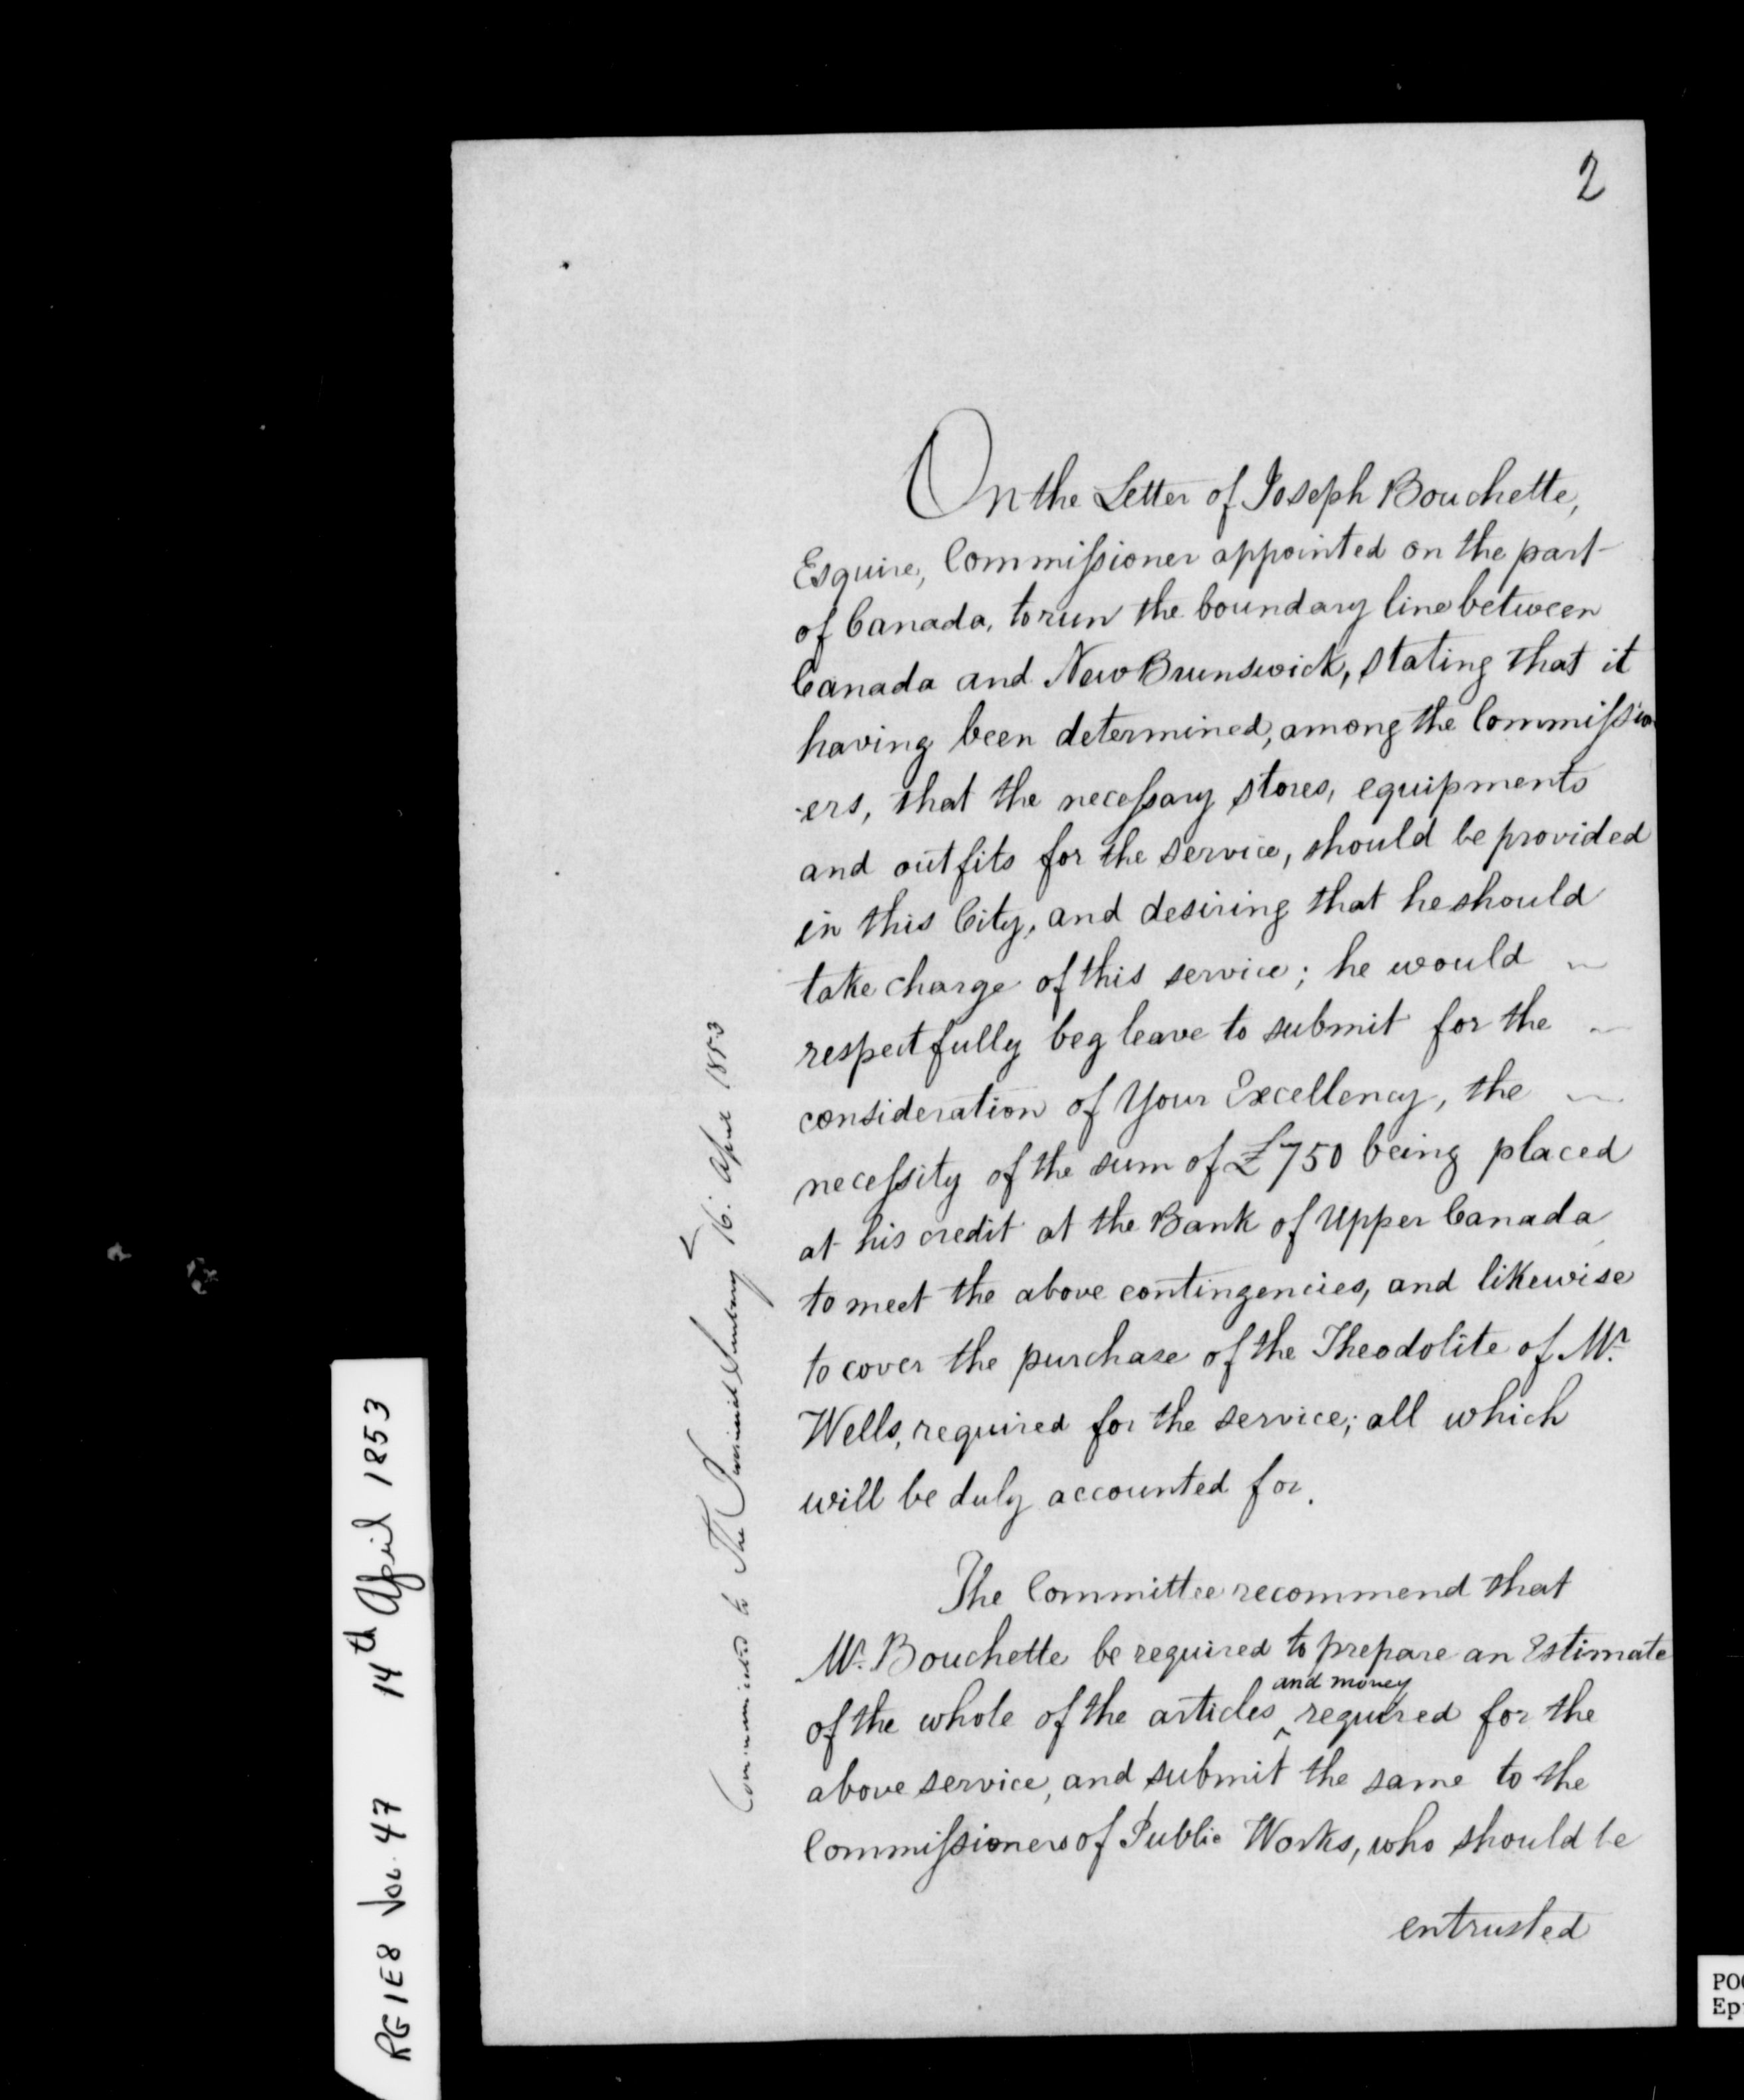 2
On the Letter of Joseph Bouchette,
Esquire, Commissioner appointed on the part
of Canada, to run the boundary line between
Canada and New Brunswick, stating that it
having been determined, among the Commission
-ers, that the necessary stores, equipments
and outfits for the service, should be provided
in this City, and desiring that he should
take charge of this service; he would
respectfully beg leave to submit for the
consideration of Your Excellency, the
necessity of the sum of £750 being placed
at his credit at the Bank of Upper Canada
to meet the above contingencies, and likewise
to cover the purchase of the Theodolite of Mr.
Wells, required for the service; all which
will be duly accounted for.
The Committee recommend that
Mr. Bouchette be required to prepare an Estimate
of the whole of the articles and money required for the
above service, and submit the same to the
Commissioners of Public Works, who should be
entrusted
Communicated to The Provincial Secretary 16: April 1853
RG1E8 Vol. 47 14th April 1853